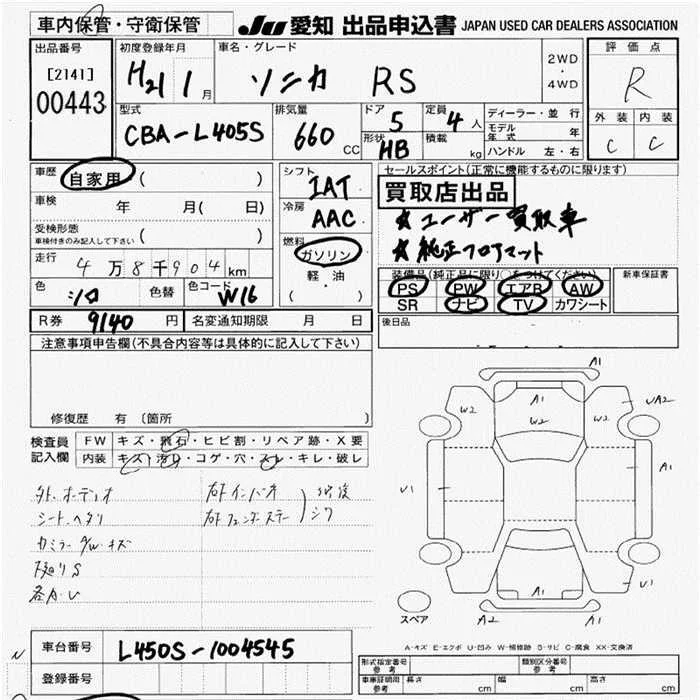 車内保管・守衛保管
JU 愛知 出品申込書 JAPAN USED CAR DEALERS ASSOCIATION
出品番号
[2141]
00443
初度登録年月
H21 1 月
車名・グレード
ソニカ RS
2WD
・
4WD
評価点
R
外装 内装
C C
型式
CBA-L405S
排気量
660 CC
ドア 5
形状 HB
定員 4 人
積載 kg
ディーラー・並行
モデル年式 年
ハンドル 左・右
車歴 自家用 ( )
車検 年 月( 日)
受検形態
車検付きのみ記入して下さい ( )
走行 4万8千904km
色 シロ 色替 色コード W16
シフト
IAT
冷房
AAC
燃料
ガソリン
軽・油
( )
セールスポイント(正常に機能するものに限ります)
買取店出品
★ユーザー買取車
★純正フロアマット
装備品(純正品に限り○をつけてください) 新車保証書
PS PW エアB AW
SR ナビ TV カワシート
後日品
R券 9140 円 名変通知期限 月 日
注意事項申告欄(不具合内容等は具体的に記入して下さい)
修復歴 有 〔箇所
検査員記入欄
FW キズ・飛石・ヒビ割・リペア跡・X要
内装 キズ・汚れ・コゲ・穴・スレ・キレ・破レ
外.オーディオ
シート.ヘタリ
カミラー A/W.キズ
下廻りS
各A.U
右Fインパネ
右Fフェンダーステー
修復
シワ
A1
A1
W2
W2
UA2
A1
U1
U1
A1
A2
A1
スペア
A-キズ E-エクボ U-凹み W-補修跡 S-サビ C-腐食 XX-交換済
N
車台番号 L450S-1004545
登録番号
形式指定番号 参考
類別区分番号 参考
車車証明 参考 長さ cm 幅 cm 高さ cm